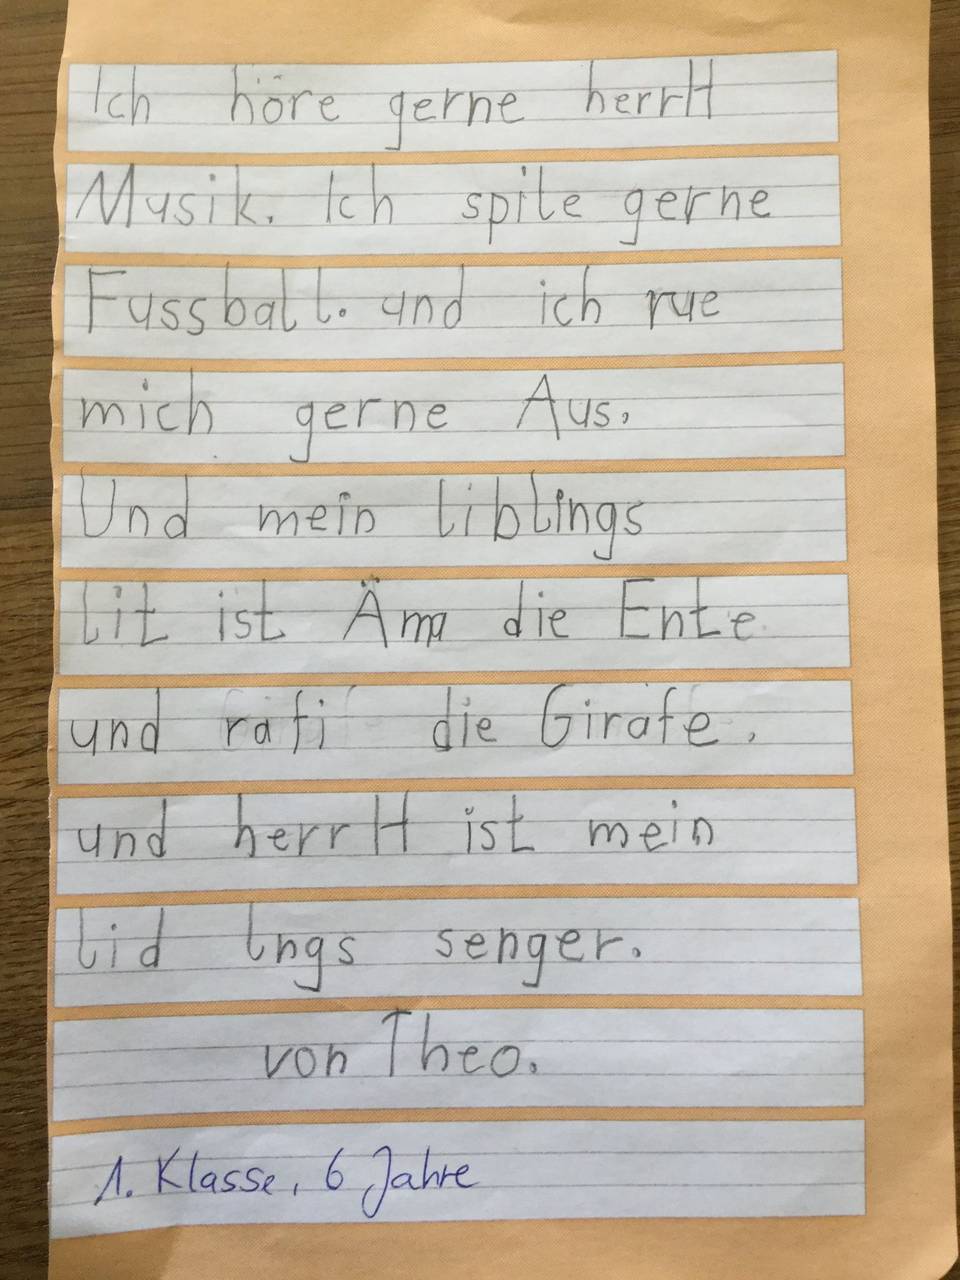 Ich höre gerne herrH
Musik. Ich spile gerne
Fussball. und ich rue
mich gerne Aus.
Und mein liblings
lit ist Äma die Ente
und rafi die Girafe.
und herrH ist mein
lid lngs senger.
von Theo.
1. Klasse, 6 Jahre